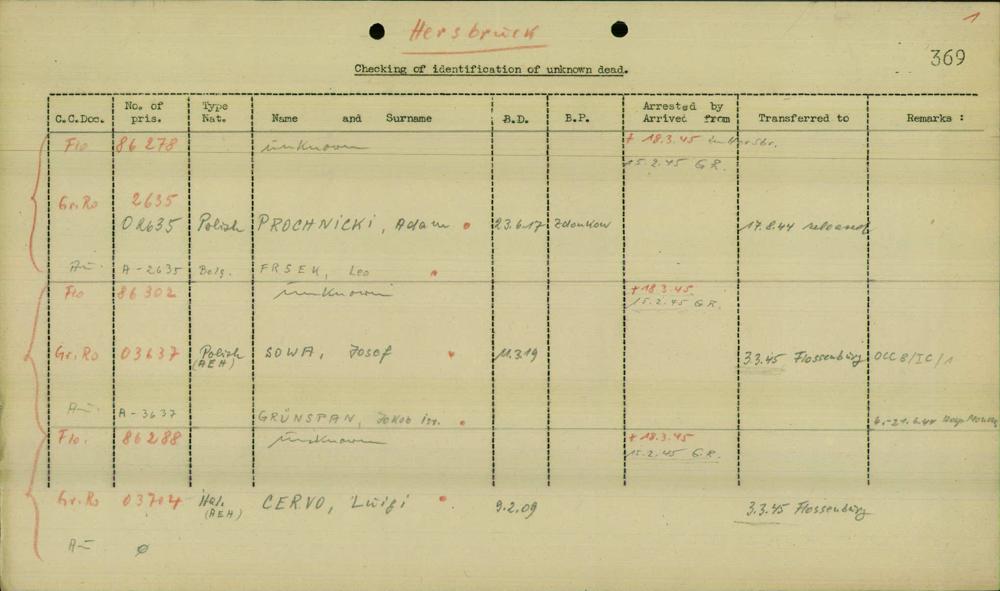 Hersbruck
1
369
Checking of identification of unknown dead.
C.C.Doc. No. of pris. Type Nat. Name and Surname B.D. B.P. Arrested by Arrived from Transferred to Remarks :
Flo 86 278 unknown + 18.3.45 in Hersbr.
15.2.45 G.R.
Gr.Ro 2635
02635 Polish PROCHNICKI, Adam 23.6.17 Zdonkow 17.8.44 released
Au A-2635 Belg. FRSEK, Leo
Flo 86 302 unknown + 18.3.45
15.2.45 G.R.
Gr.Ro 03637 Polish (AEH) SOWA, Josef 11.3.19 3.3.45 Flossenbürg OCC8/IC/1
Au A-3637 GRÜNSPAN, Jakob Isr.
Flo. 86288 unknown + 18.3.45
15.2.45 G.R.
Gr.Ro 03704 Ital. (AEH) CERVO, Luigi 9.2.09 3.3.45 Flossenbürg
Au ø